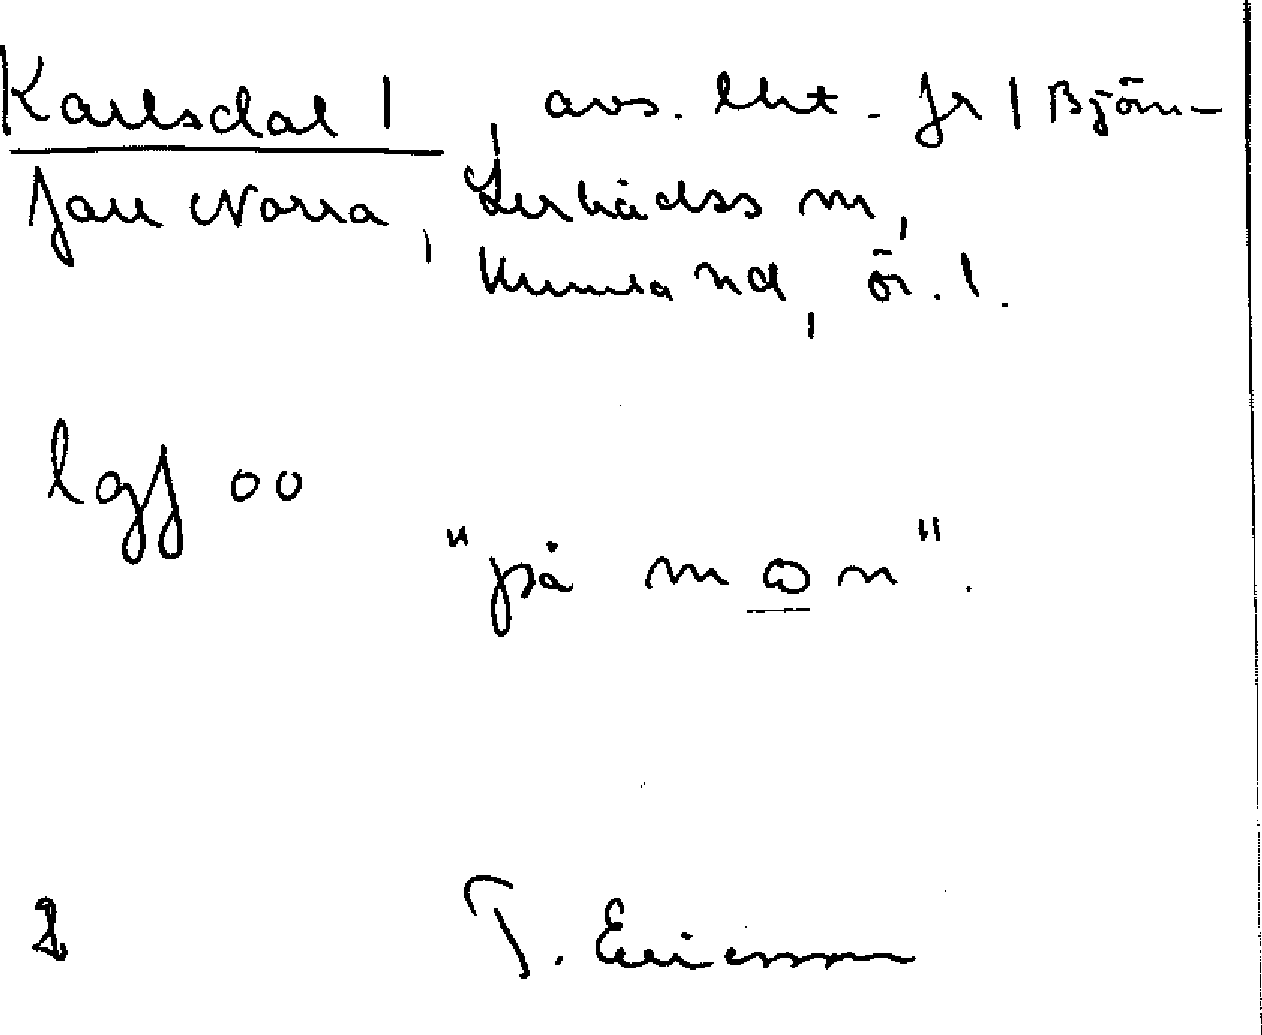 Karlsdal 1, avs. lht. fr 1 Björn-
fall Norra, Lerbäcks sn,
Kumla hd, Ör. l.
lgf 00
"på mon".
2
T. Ericsson